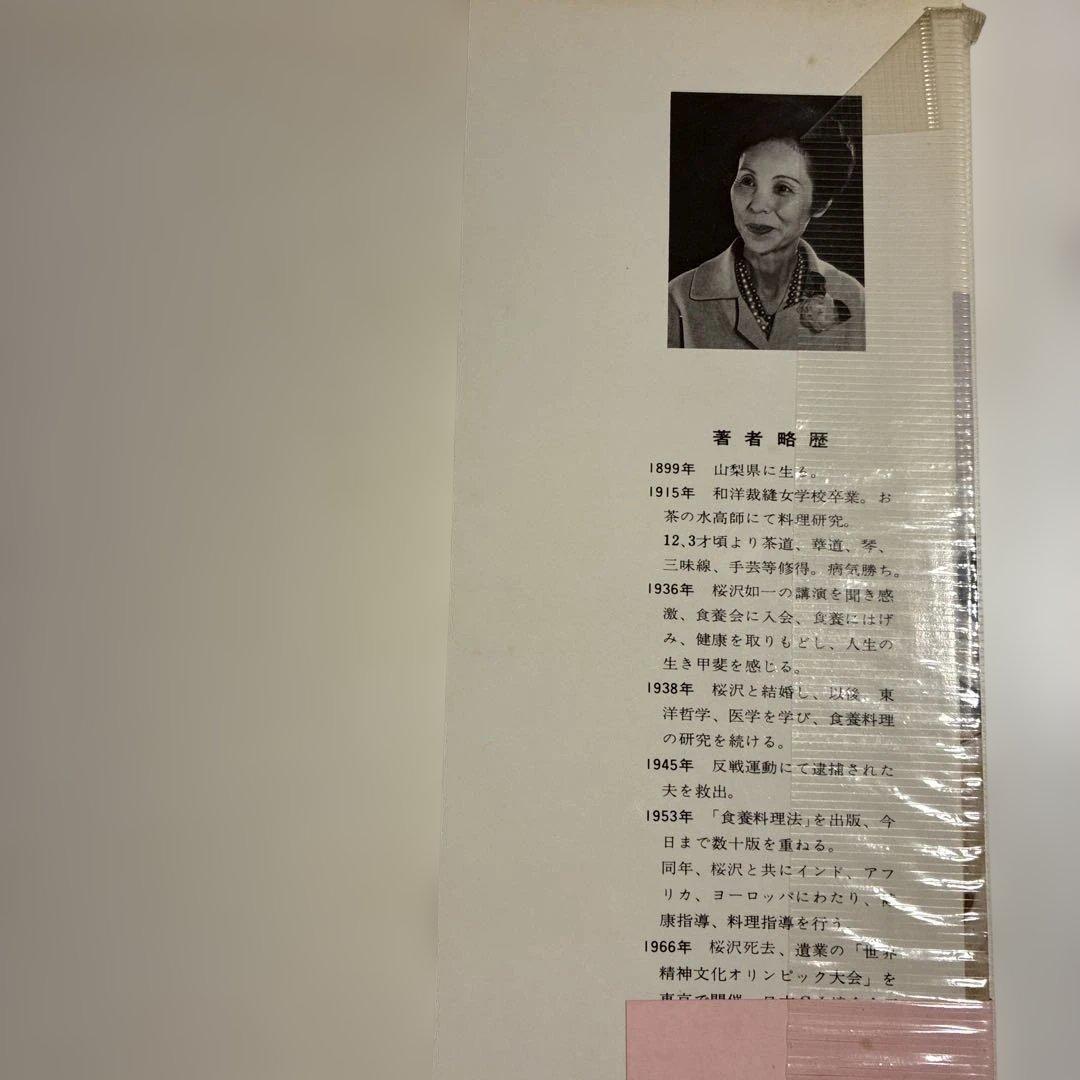 著者略歴
1899年 山梨県に生る。
1915年 和洋裁縫女学校卒業。お
茶の水高師にて料理研究。
12、3才頃より茶道、華道、琴、
三味線、手芸等修得。病気勝ち。
1936年 桜沢如一の講演を聞き感
激、食養会に入会、食養にはげ
み、健康を取りもどし、人生の
生き甲斐を感じる。
1938年 桜沢と結婚し、以後、東
洋哲学、医学を学び、食養料理
の研究を続ける。
1945年 反戦運動にて逮捕された
夫を救出。
1953年 「食養料理法」を出版、今
日まで数十版を重ねる。
同年、桜沢と共にインド、アフ
リカ、ヨーロッパにわたり、健
康指導、料理指導を行う
1966年 桜沢死去、遺業の「世界
精神文化オリンピック大会」を
東京で開催